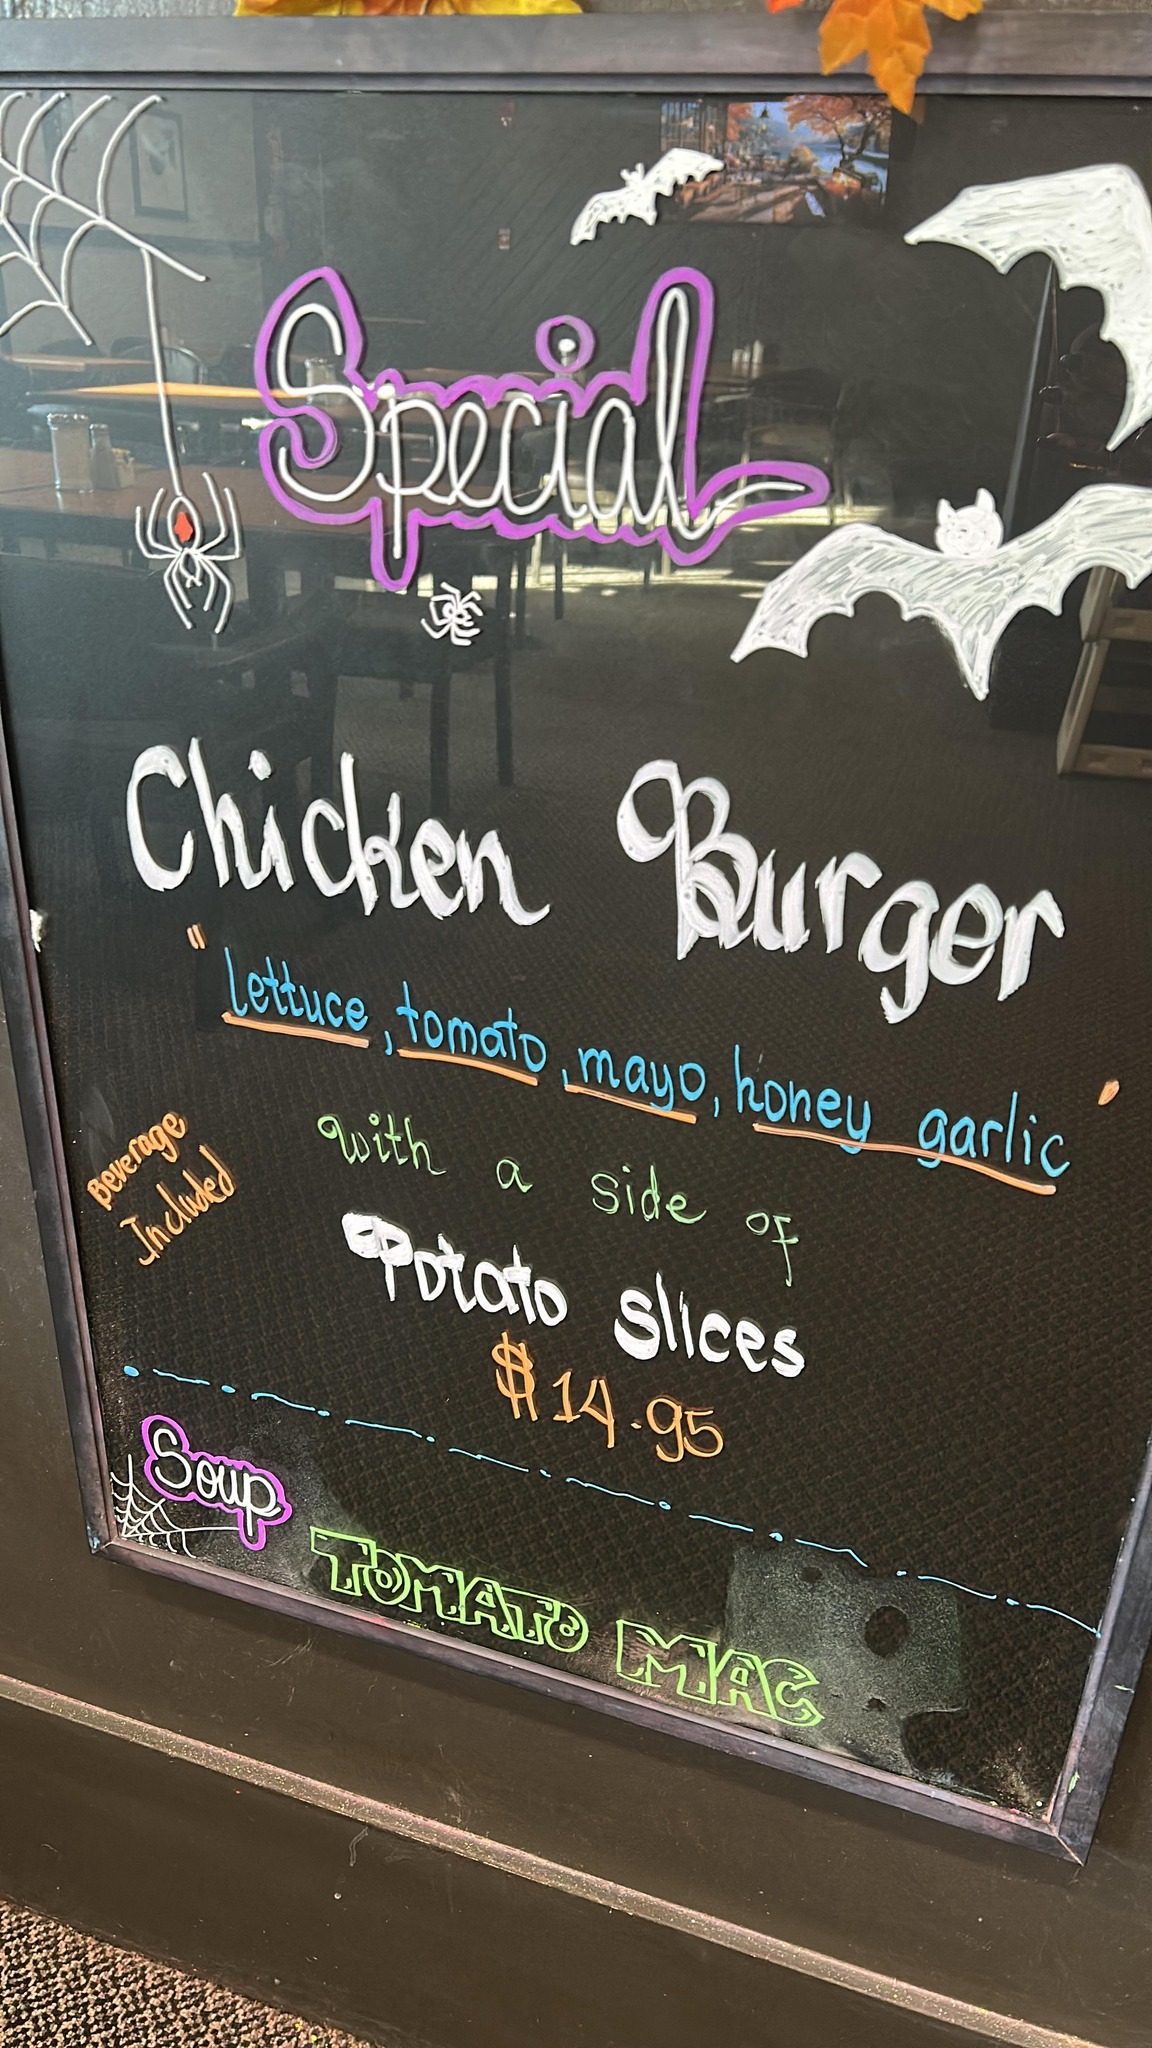 Special
Chicken Burger
"lettuce, tomato, mayo, honey garlic'
Beverage
Included
with a side of
Potato slices
$14.95
Soup
TOMATO MAC